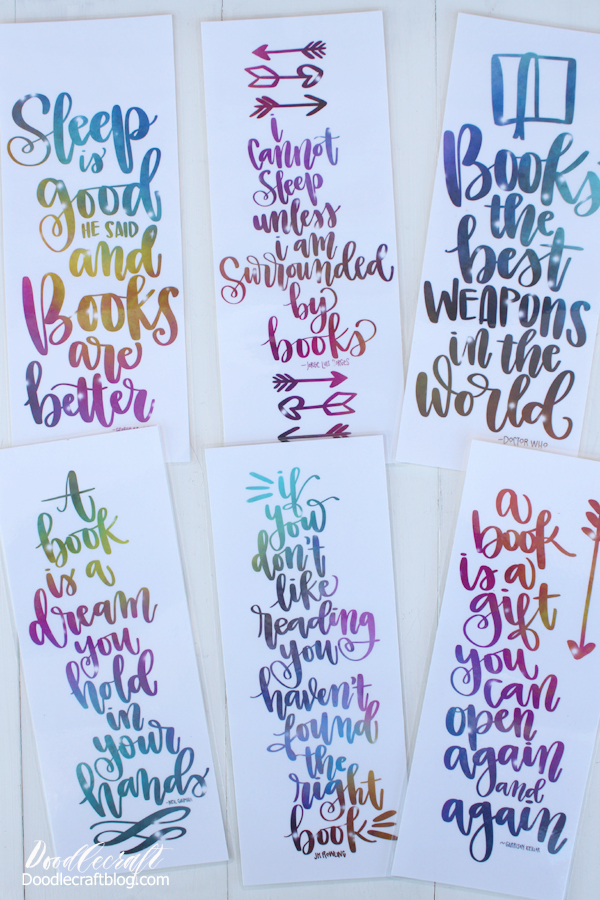 Sleep
is
good
HE SAID
and
Books
are
better
i
cannot
sleep
unless
i am
Surrounded
by
books
Books
the
best
WEAPONS
in the
World
—DOCTOR WHO
A
book
is a
dream
you
hold
in
your
hands
~NEIL GAIMAN
if
you
don't
like
reading
you
haven't
found
the
right
book
JK ROWLING
a
book
is a
gift
you
can
open
again
and
again
~GARRISON KEILLOR
Doodlecraft
Doodlecraftblog.com